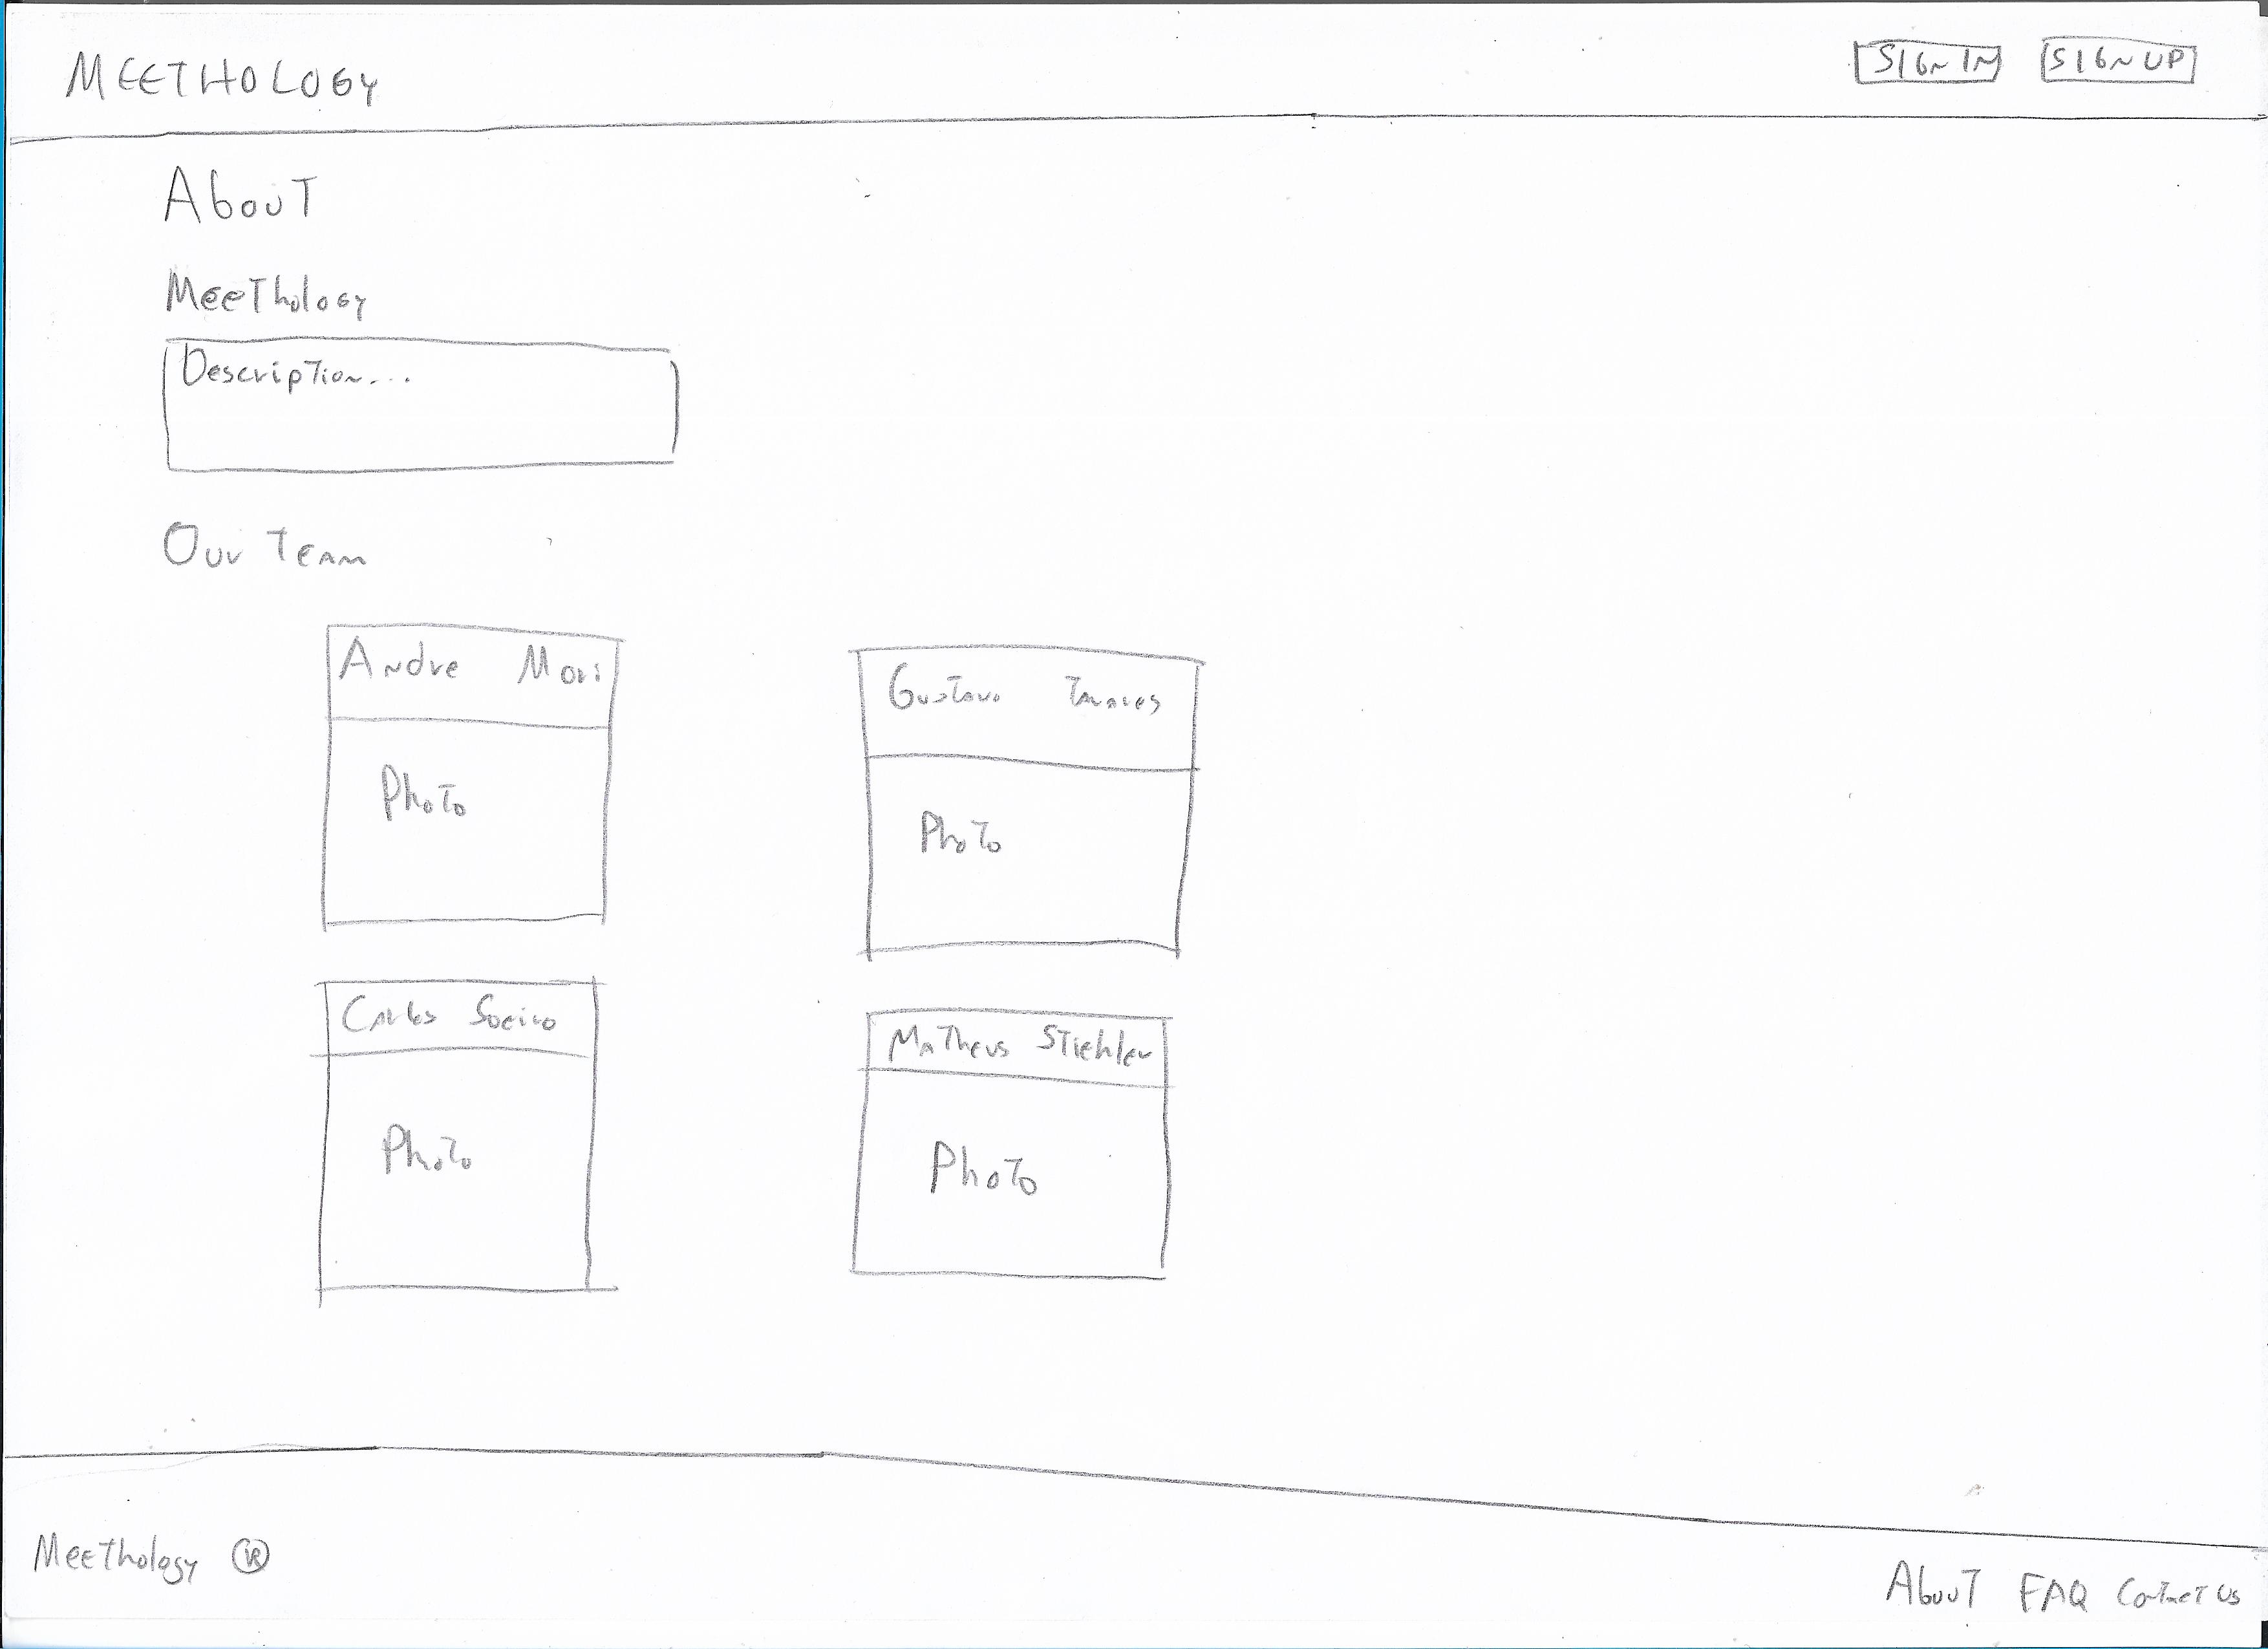 MEETHOLOGY
SIGN IN SIGN UP
About
Meethology
Description...
Our Team
Andre Mori
Gustavo Tavares
Photo
Photo
Carlos Soeiro
Matheus Stiehler
Photo
Photo
Meethology ®
About FAQ Contact Us